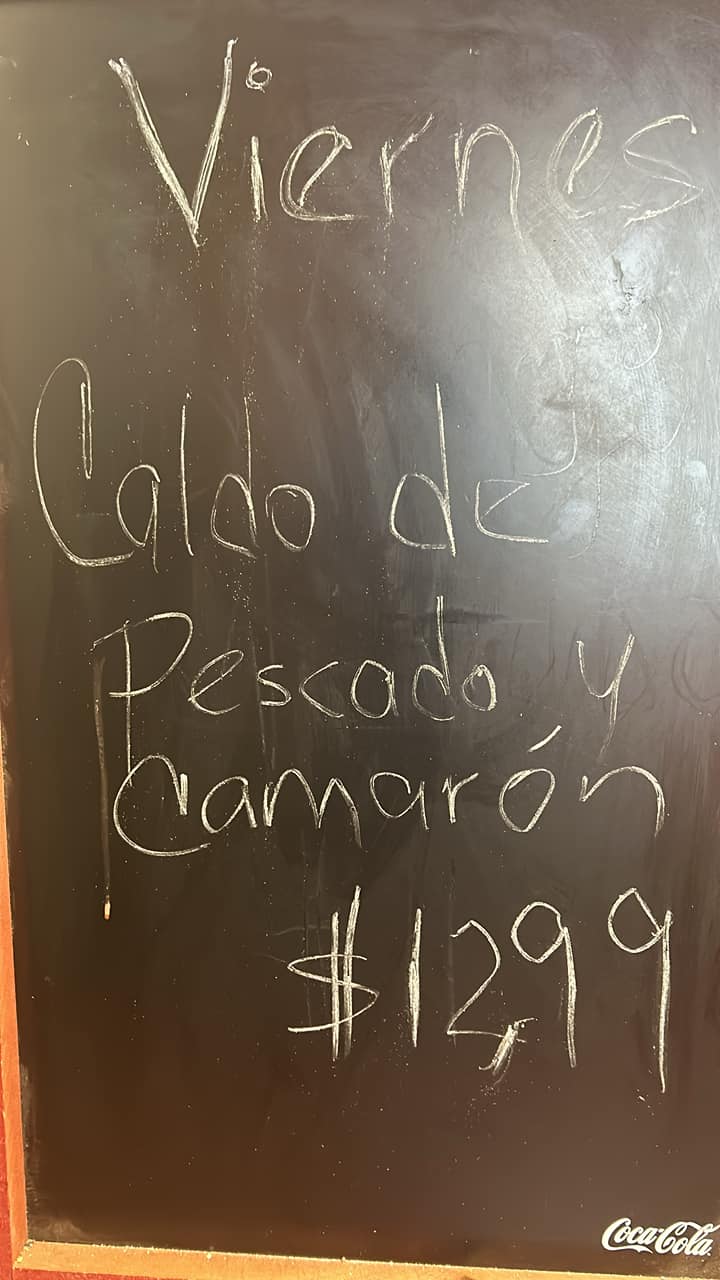 Viernes
Caldo de
Pescado y
Camarón
$12,99
Coca-Cola